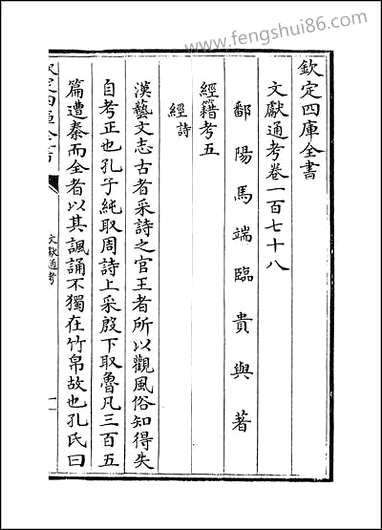 www.fengshui86.com
欽定四庫全書
文獻通考卷一百七十八
鄱陽馬端臨貴與著
經籍考五
經詩
漢藝文志古者采詩之官王者所以觀風俗知得失
自考正也孔子純取周詩上采殷下取魯凡三百五
篇遭秦而全者以其諷誦不獨在竹帛故也孔氏曰
欽定四庫全書
文獻通考
一